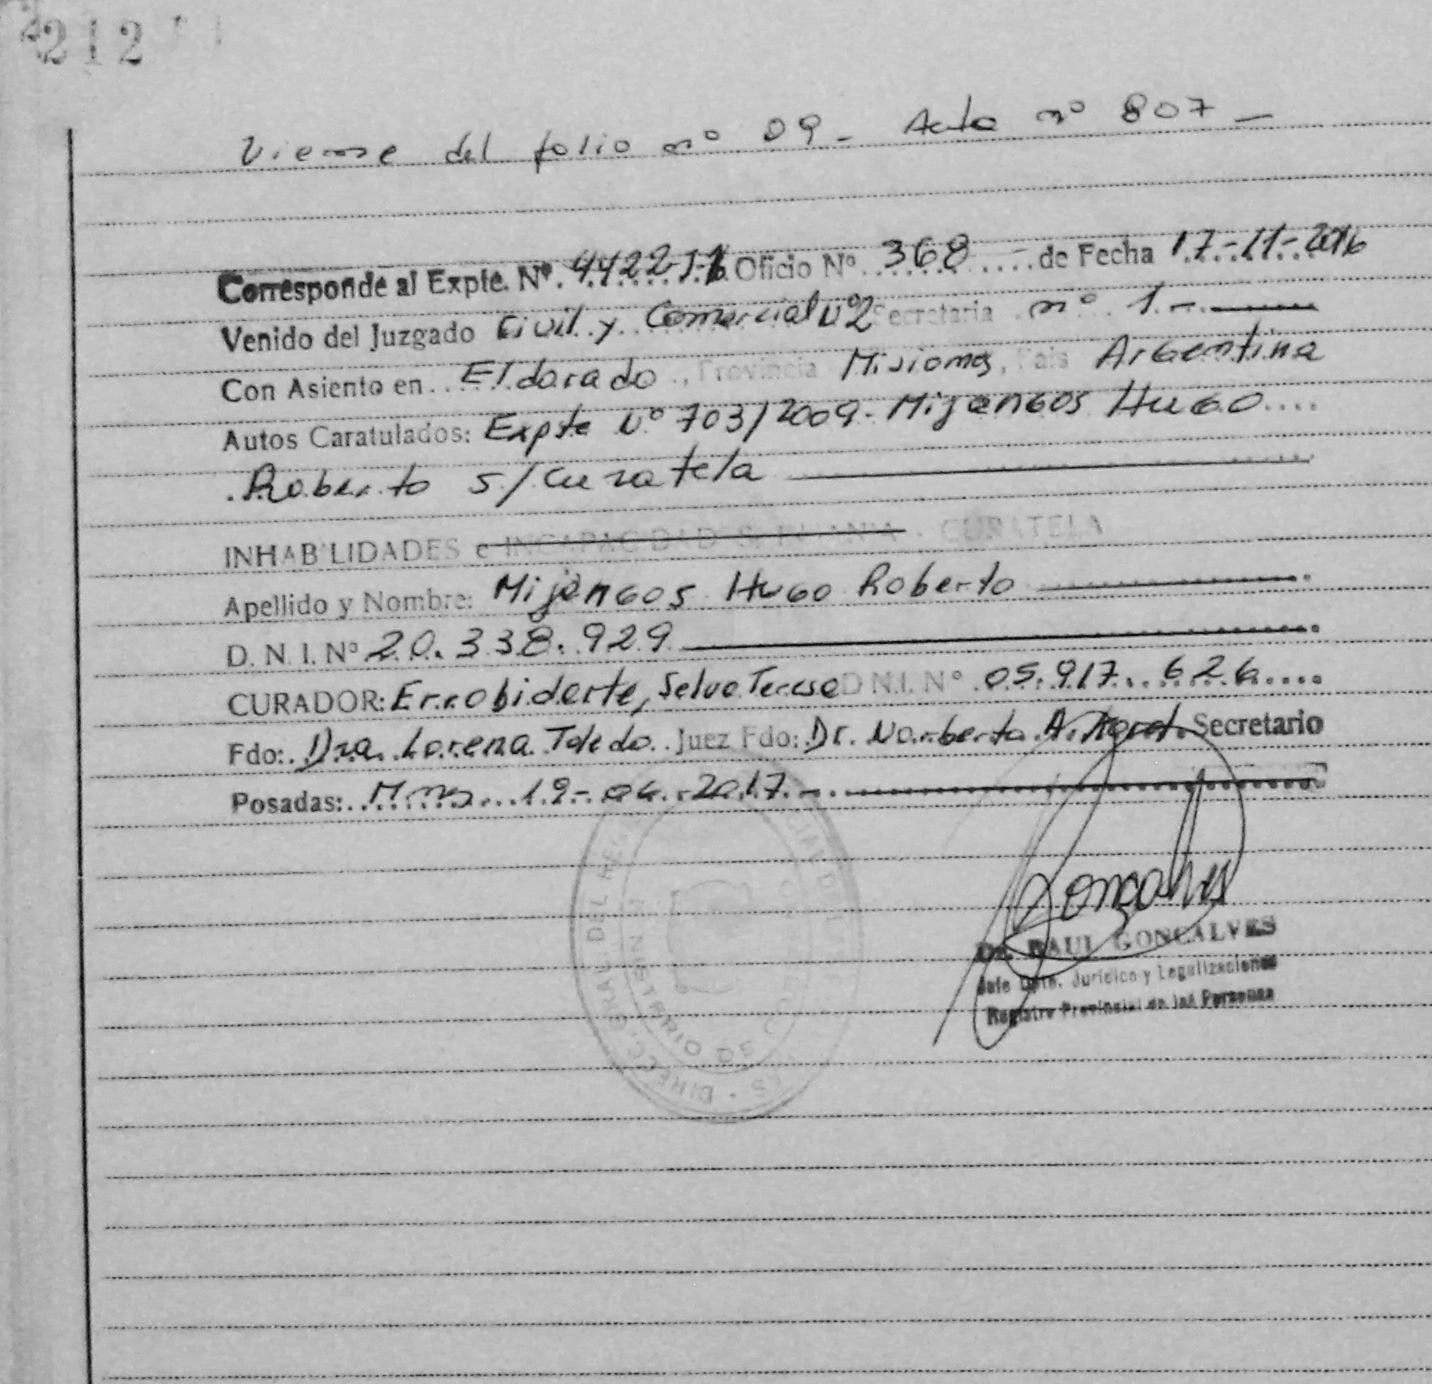 212
Viene del folio nº 09 - Acta nº 807 -
Corresponde al Expte. Nº 4422-J-16 Oficio Nº 368 - de Fecha 17-11-2016
Venido del Juzgado Civil y Comercial Nº2 Secretaria nº 1 -
Con Asiento en Eldorado, Provincia Misiones, País Argentina
Autos Caratulados: Expte Nº 703/2009 - Mijangos Hugo
Roberto s/ Curatela
INHABILIDADES e INCAPACIDAD S. P. INANIA - CURATELA
Apellido y Nombre: Mijangos Hugo Roberto
D. N. I. Nº 20.338.929
CURADOR: Errobidarte, Selva Teresa D N.I. Nº 05.917.626
Fdo: Dra. Lorena Toledo Juez Fdo: Dr. Norberto A. Secretario
Posadas: Mnes 19-04-2017 -
Goncalves
Dr. RAUL GONCALVES
Jefe Dpto. Jurídico y Legalizaciones
Registro Provincial de las Personas
DIREC. GRAL. DEL
REGISTRO DE